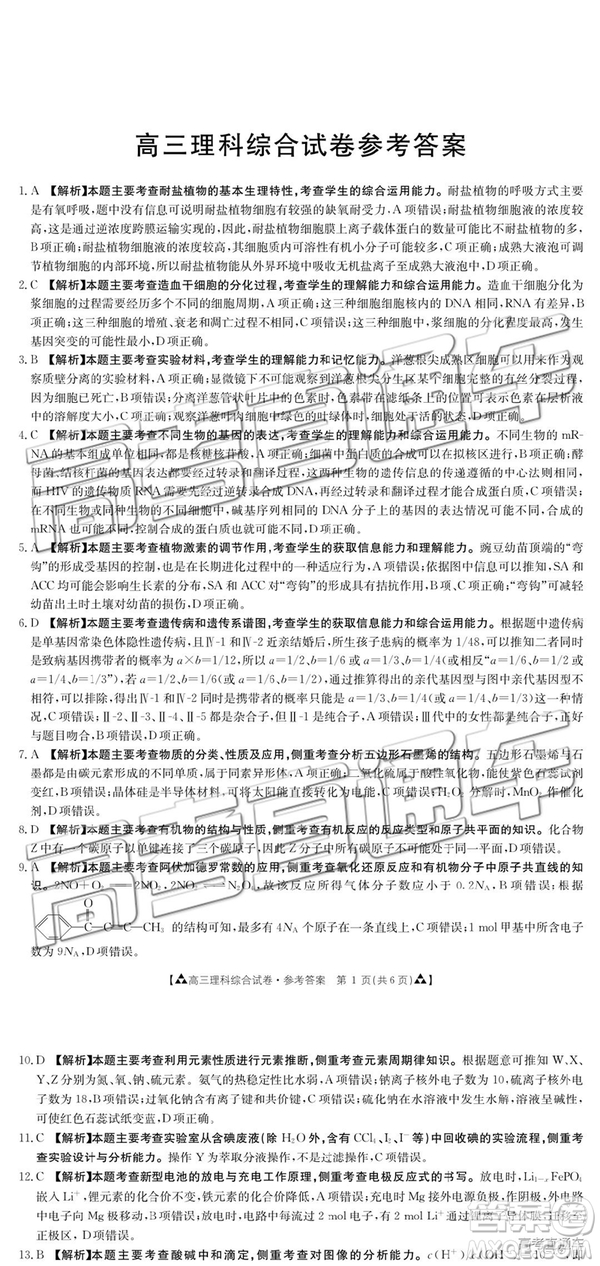 高三理科综合试卷参考答案
1. A 【解析】本题主要考查耐盐植物的基本生理特性,考查学生的综合运用能力。耐盐植物的呼吸方式主要
是有氧呼吸,题中没有信息可说明耐盐植物细胞有较强的缺氧耐受力,A项错误;耐盐植物细胞液的浓度较
高,这是通过逆浓度跨膜运输实现的,因此,耐盐植物细胞膜上离子载体蛋白的数量可能比不耐盐植物的多,
B项正确;耐盐植物细胞液的浓度较大,其细胞质内可溶性有机小分子可能较多,C项正确;成熟大液泡可调节
植物细胞的内部环境,所以耐盐植物能从外界环境中吸收无机盐离子至成熟大液泡中,D项正确。
2. C 【解析】本题主要考查造血干细胞的分化过程,考查学生的理解能力和综合运用能力。造血干细胞分化为
浆细胞的过程需要经历多个不同的细胞周期,A项正确;这三种细胞细胞核内的DNA相同,RNA有差异,B
项正确;这三种细胞的增殖、衰老和凋亡过程不同,C项错误;这三种细胞中,浆细胞的分化程度最高,发生
基因突变的可能性最小,D项正确。
3. B 【解析】本题主要考查实验材料,考查学生的理解能力和记忆能力。洋葱根尖成熟区细胞可以用来作为观
察质壁分离的实验材料,A项错误;显微镜下不可能观察到洋葱根尖分生区某个细胞完整的有丝分裂过程,
因为细胞已死亡,B项正确;分离洋葱管状叶片中的色素时,色素在滤纸条上的宽度表示该种色素在层析液
中的多少,C项错误;观察洋葱叶肉细胞中绿色的叶绿体时,细胞处于活的状态,D项错误。
4. C 【解析】本题主要考查不同生物的基因的表达,考查学生的理解能力和综合运用能力。不同生物的mR-
NA的基本组成单位相同,都是核糖核苷酸,A项正确;细菌中蛋白质的合成可以在拟核区进行,B项正确;酵
母菌、结核杆菌的基因表达都要经过转录和翻译过程,这两种生物的遗传信息的传递遵循的中心法则相同,
而HIV的遗传物质RNA需要先经过逆转录合成DNA,再经过转录和翻译过程才能合成蛋白质,C项错误;
在不同生物或同种生物的不同细胞中,碱基序列相同的DNA上不同的基因经转录、翻译过程,合成的
mRNA也可能不同,控制合成的蛋白质也可能不同,D项正确。
5. A 【解析】本题主要考查植物激素的调节作用,考查学生的获取信息能力和理解能力。豌豆幼苗顶端的“弯
钩”的形成受基因的控制,也是在长期进化过程中的一种适应,A项错误;依据图中信息可以推知,SA和
ACC均可能会影响生长素的分布,SA和ACC对“弯钩”的形成具有拮抗作用,B项、C项正确;“弯钩”可减轻
幼苗出土时土壤对幼苗的损伤,D项正确。
6. D 【解析】本题主要考查遗传病和遗传系谱图,考查学生的获取信息能力和综合运用能力。根据题中遗传病
是单基因常染色体隐性遗传病,且Ⅳ-1和Ⅳ-2近亲结婚后,所生孩子患病的概率为1/48,可以推知二者同时
是致病基因携带者的概率为a×b=1/12,所以a=1/2、b=1/6或a=1/3、b=1/4(或a=1/6、b=1/2或
a=1/4、b=1/3),若a=1/2、b=1/6(或a=1/6、b=1/2),通过概率推出的亲代基因型与图中亲代基因型不
相符,可以排除,得出Ⅳ-1和Ⅳ-2同时是携带者的概率只能是a=1/3、b=1/4(或a=1/4、b=1/3),A项错
误,B项错误;Ⅱ-2、Ⅱ-3、Ⅱ-4一定是杂合子,但Ⅱ-1是纯合子,C项错误;Ⅲ代中的女性都一定是纯合子,正好
与题目给予的信息一致,D项正确。
7. A 【解析】本题主要考查物质的分类、性质及应用,侧重考查分析五边形石墨烯的结构。五边形石墨烯与石
墨都是由碳元素形成的不同单质,属于同素异形体,A项正确;二氧化硫属于酸性氧化物,不能使紫色石蕊试剂
变红,B项错误;晶体硅是半导体材料,可将太阳能直接转化为电能,C项错误;H₂O₂分解时,MnO₂作催化
剂,D项错误。
8. D 【解析】本题主要考查有机物的结构与性质,侧重考查有机反应的反应类型和原子共平面的知识。化合物
Z中有一个碳原子以单键连接了三个碳原子,因此Z分子中所有碳原子不可能共平面,D项错误。
9. A 【解析】本题主要考查阿伏加德罗常数的应用,侧重考查氧化还原反应和有机物分子中原子共直线的知
识。2NO+O₂=2NO₂,2NO₂⇌N₂O₄,故该反应所得气体的分子总数小于0.2Nₐ,A项正确;根据
O
C—C—C—CH₃ 的结构可知,最多有4Nₐ个原子在一条直线上,C项错误;1 mol甲基中所含电子
数为9Nₐ,D项错误。
【高三理科综合试卷·参考答案 第1页(共6页)】
10. D 【解析】本题主要考查利用元素性质进行元素推断,侧重考查元素周期律知识。根据题意可知W、X、
Y、Z分别为氮、氧、钠、硫元素。氨气的热稳定性比水弱,A项错误;钠离子核外电子数为10,硫离子核外电子
数为18,B项错误;过氧化钠含有离子键和共价键,C项错误;硫化钠在水溶液中发生水解,溶液显碱性,
可使红色石蕊试纸变蓝,D项正确。
11. C 【解析】本题主要考查实验室从含碘废液(除H₂O外,含有CCl₄、I₂、I⁻等)中回收碘的实验流程,侧重考
查实验设计与分析能力。操作Y为萃取分液操作,不是过滤操作,C项错误。
12. C 【解析】本题主要考查新型电池的放电与充电工作原理,侧重考查电极反应式的书写。放电时,Li₁₋ₓFePO₄
嵌入Li⁺,锂元素的化合价不变,铁元素的化合价降低,A项错误;放电时,Mg极是外接电源负极,B项错误;外
电路中电子由Mg极流出,C项正确;放电时,电路中每流过2 mol电子,有2 mol Li⁺
正极区,D项错误。
13. B 【解析】本题主要考查酸碱中和滴定,侧重考查对图像的分析能力。